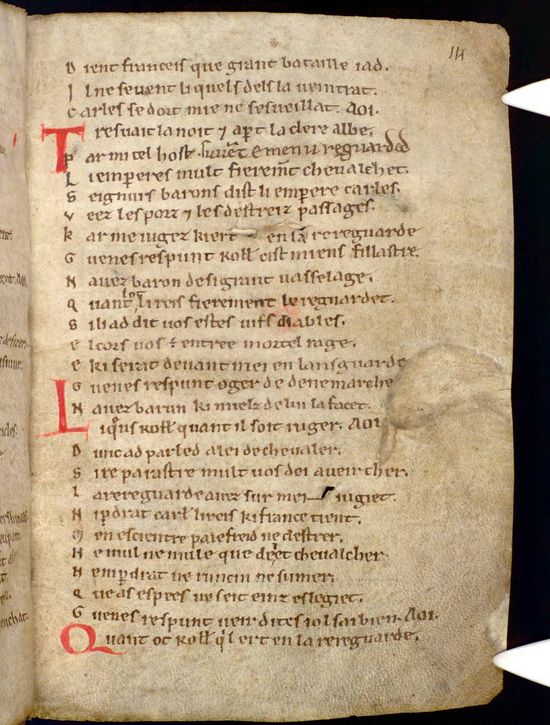 14
D ient franceis que grant bataille iad.
I l ne seuent li quels dels la veintrat.
C arles se dort mie ne sesveillat. AOI.
T resvait la noit ⁊ apt la clere albe.
P ar mi cel host
L i emperes mult fierem̅t chevalchet.
S eignurs barons dist li emperere carles.
V eez les porz ⁊ les destreiz passages.
K ar me iugez ki ert en la rereguarde
G uenes respunt Roll̅ cist miens fillastre.
N auez baron de si grant vasselage.
Q uant lot li reis fierement le reguardet.
S i li ad dit vos estes vifs diables.
E l cors vos ē entree mortel rage.
E ki serat devant mei en lansguarde
G uenes respunt oger de denemarche
N auez barun ki mielz de lui la facet.
L i q̄ns Roll̅ quant il soit iuger. AOI
D unc ad parled a lei de chevaler.
S ire parastre mult vos dei aveir cher.
L a rereguarde avez sur mei iugiet.
N i p̱drat carl̅ li reis ki france tient.
M en escientre palefreid ne destrer.
N e mul ne mule que deiet chevalcher
N e nip̱drat ne runcin ne sumer.
Q ue as espees ne seit einz eslegiet.
G uenes respunt veir dites iol sai bien. AOI.
Q uant ot Roll̅ q̓l ert en la rereguarde.